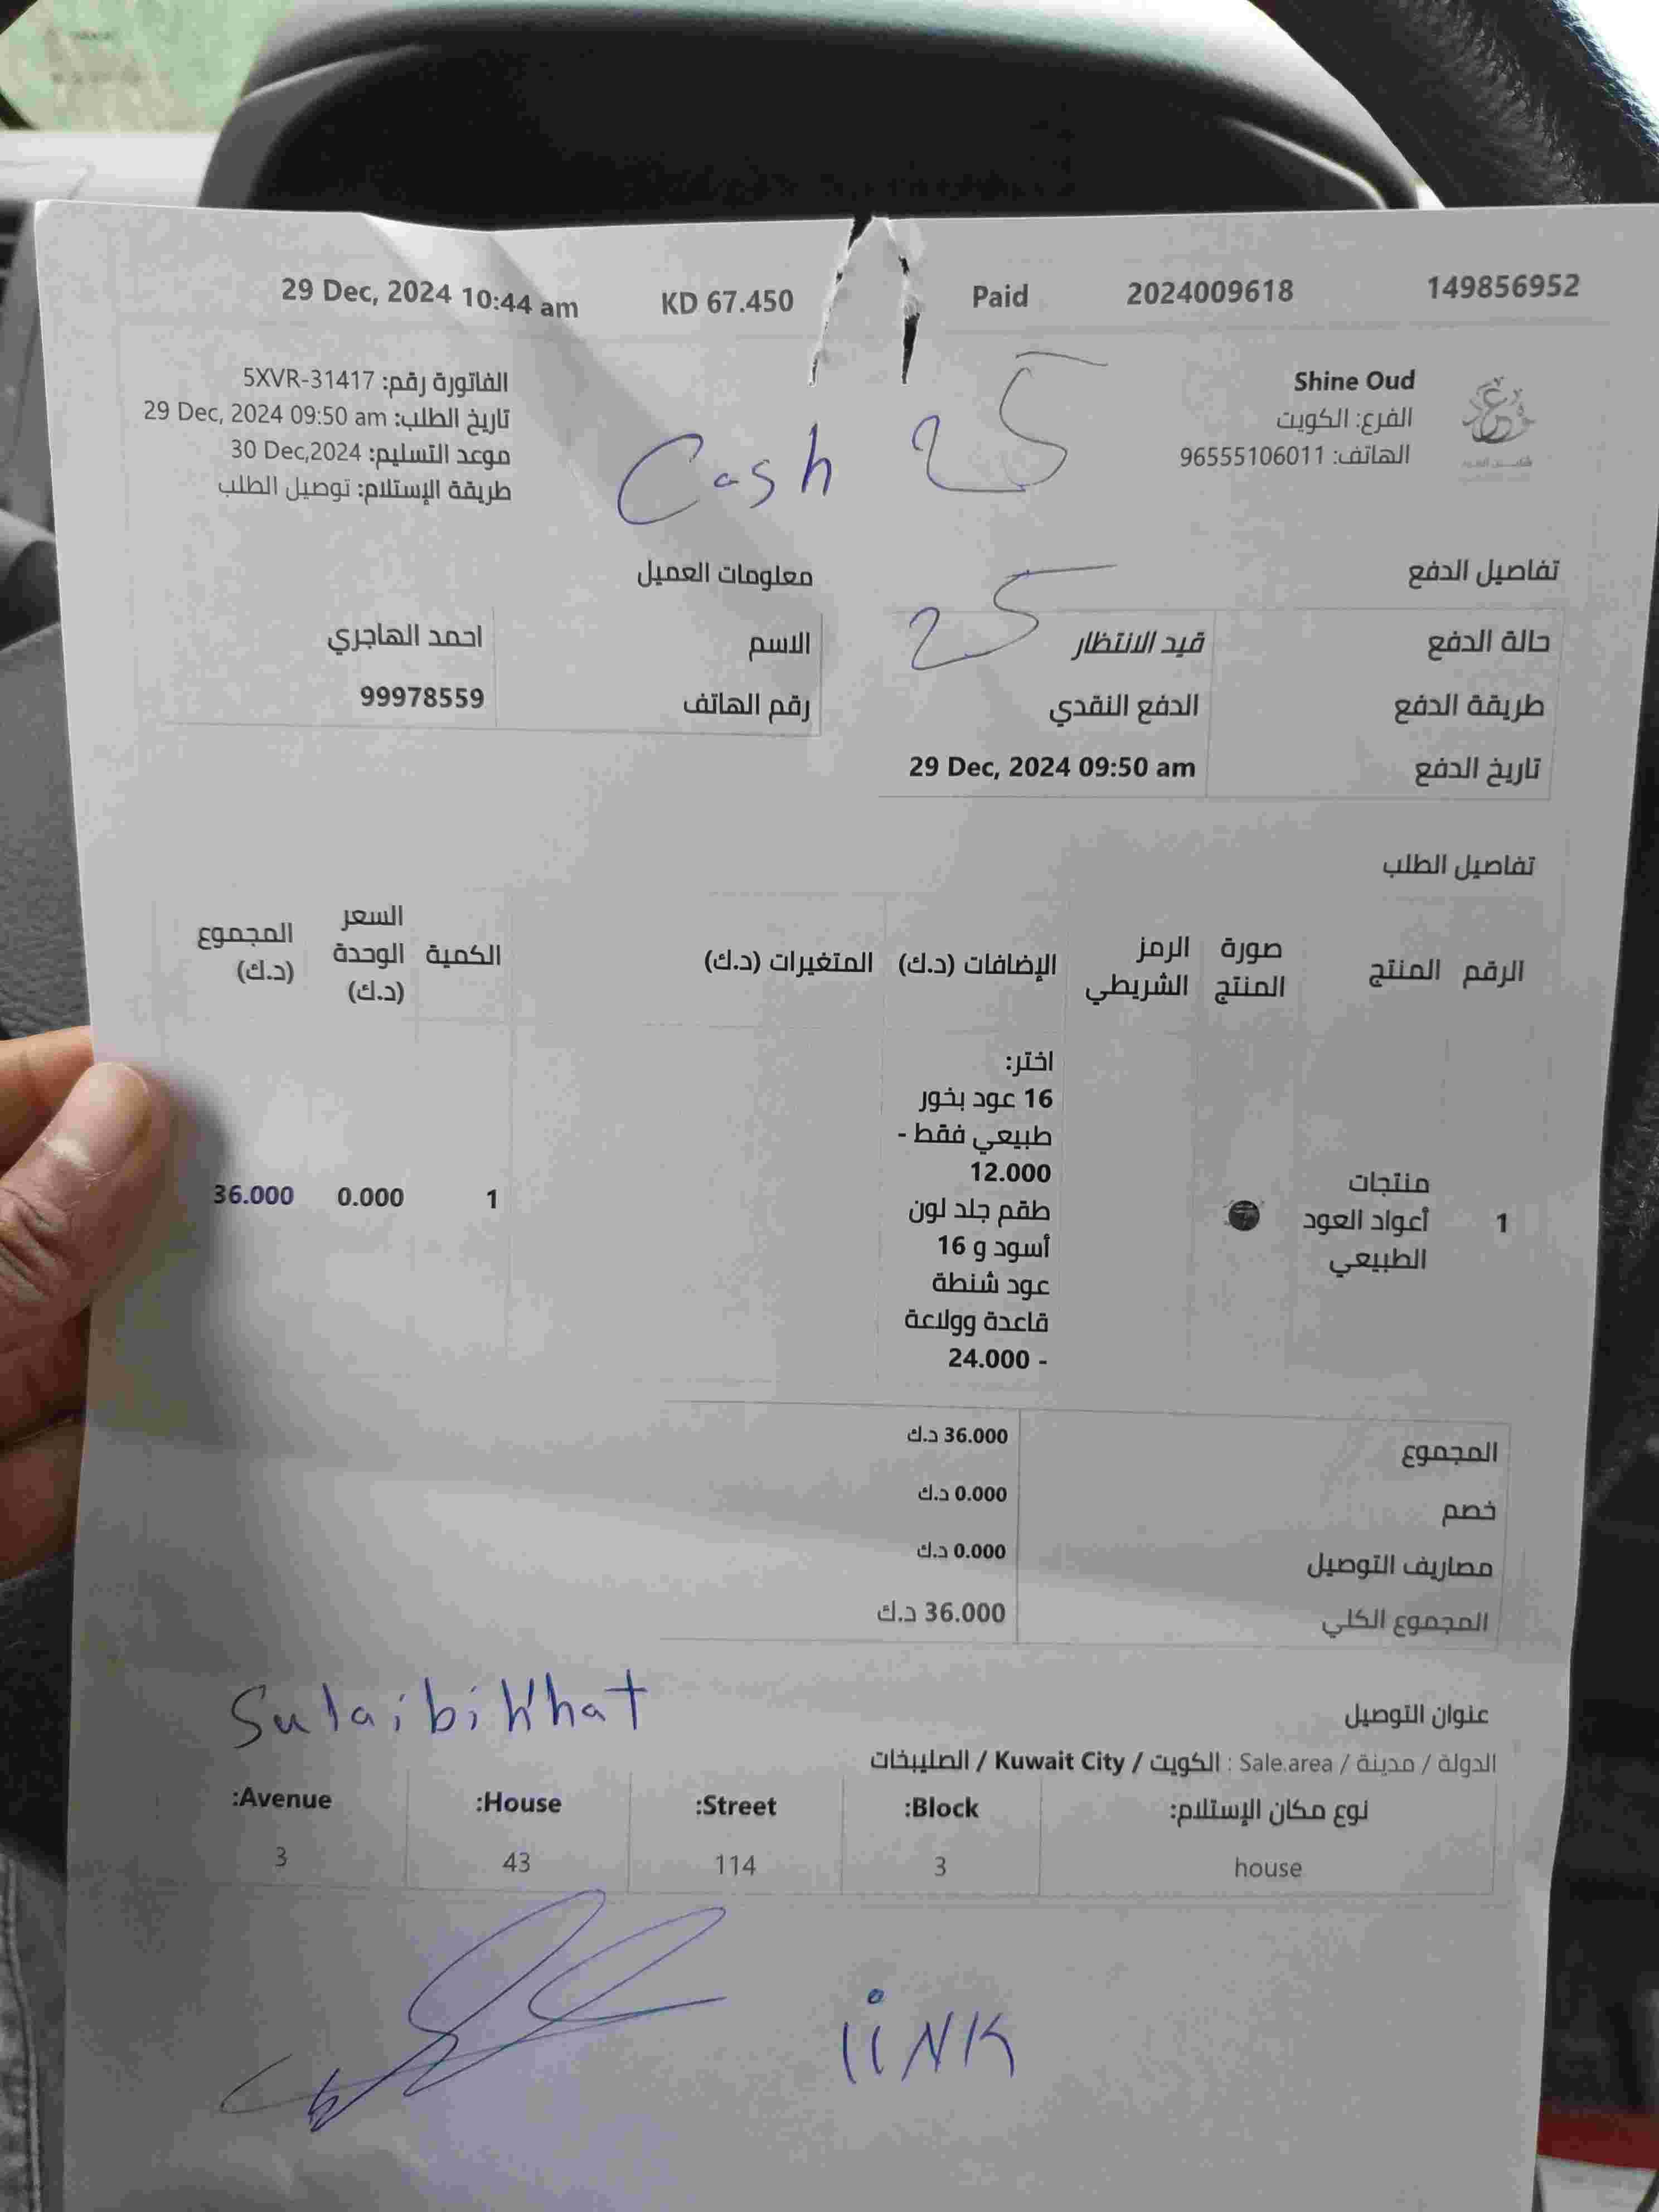 149856952 2024009618 Paid KD 67.450 29 Dec, 2024 10:44 am
Shine Oud
الفرع: الكويت
الهاتف: 96555106011
Cash 25
الفاتورة رقم: 5XVR-31417
تاريخ الطلب: 29 Dec, 2024 09:50 am
موعد التسليم: 30 Dec,2024
طريقة الإستلام: توصيل الطلب
تفاصيل الدفع
25
حالة الدفع قيد الانتظار
طريقة الدفع الدفع النقدي
تاريخ الدفع 29 Dec, 2024 09:50 am
معلومات العميل
الاسم احمد الهاجري
رقم الهاتف 99978559
تفاصيل الطلب
الرقم المنتج صورة المنتج الرمز الشريطي الإضافات (د.ك) المتغيرات (د.ك) الكمية السعر الوحدة (د.ك) المجموع (د.ك)
1
منتجات
أعواد العود
الطبيعي
اختر:
16 عود بخور
طبيعي فقط -
12.000
طقم جلد لون
أسود و 16
عود شنطة
قاعدة وولاعة
- 24.000
1 0.000 36.000
المجموع 36.000 د.ك
خصم 0.000 د.ك
مصاريف التوصيل 0.000 د.ك
المجموع الكلي 36.000 د.ك
Sulaibikhat
عنوان التوصيل
الدولة / مدينة / Sale.area : الكويت / Kuwait City / الصليبخات
نوع مكان الإستلام: Block: Street: House: Avenue:
house 3 114 43 3
liNK